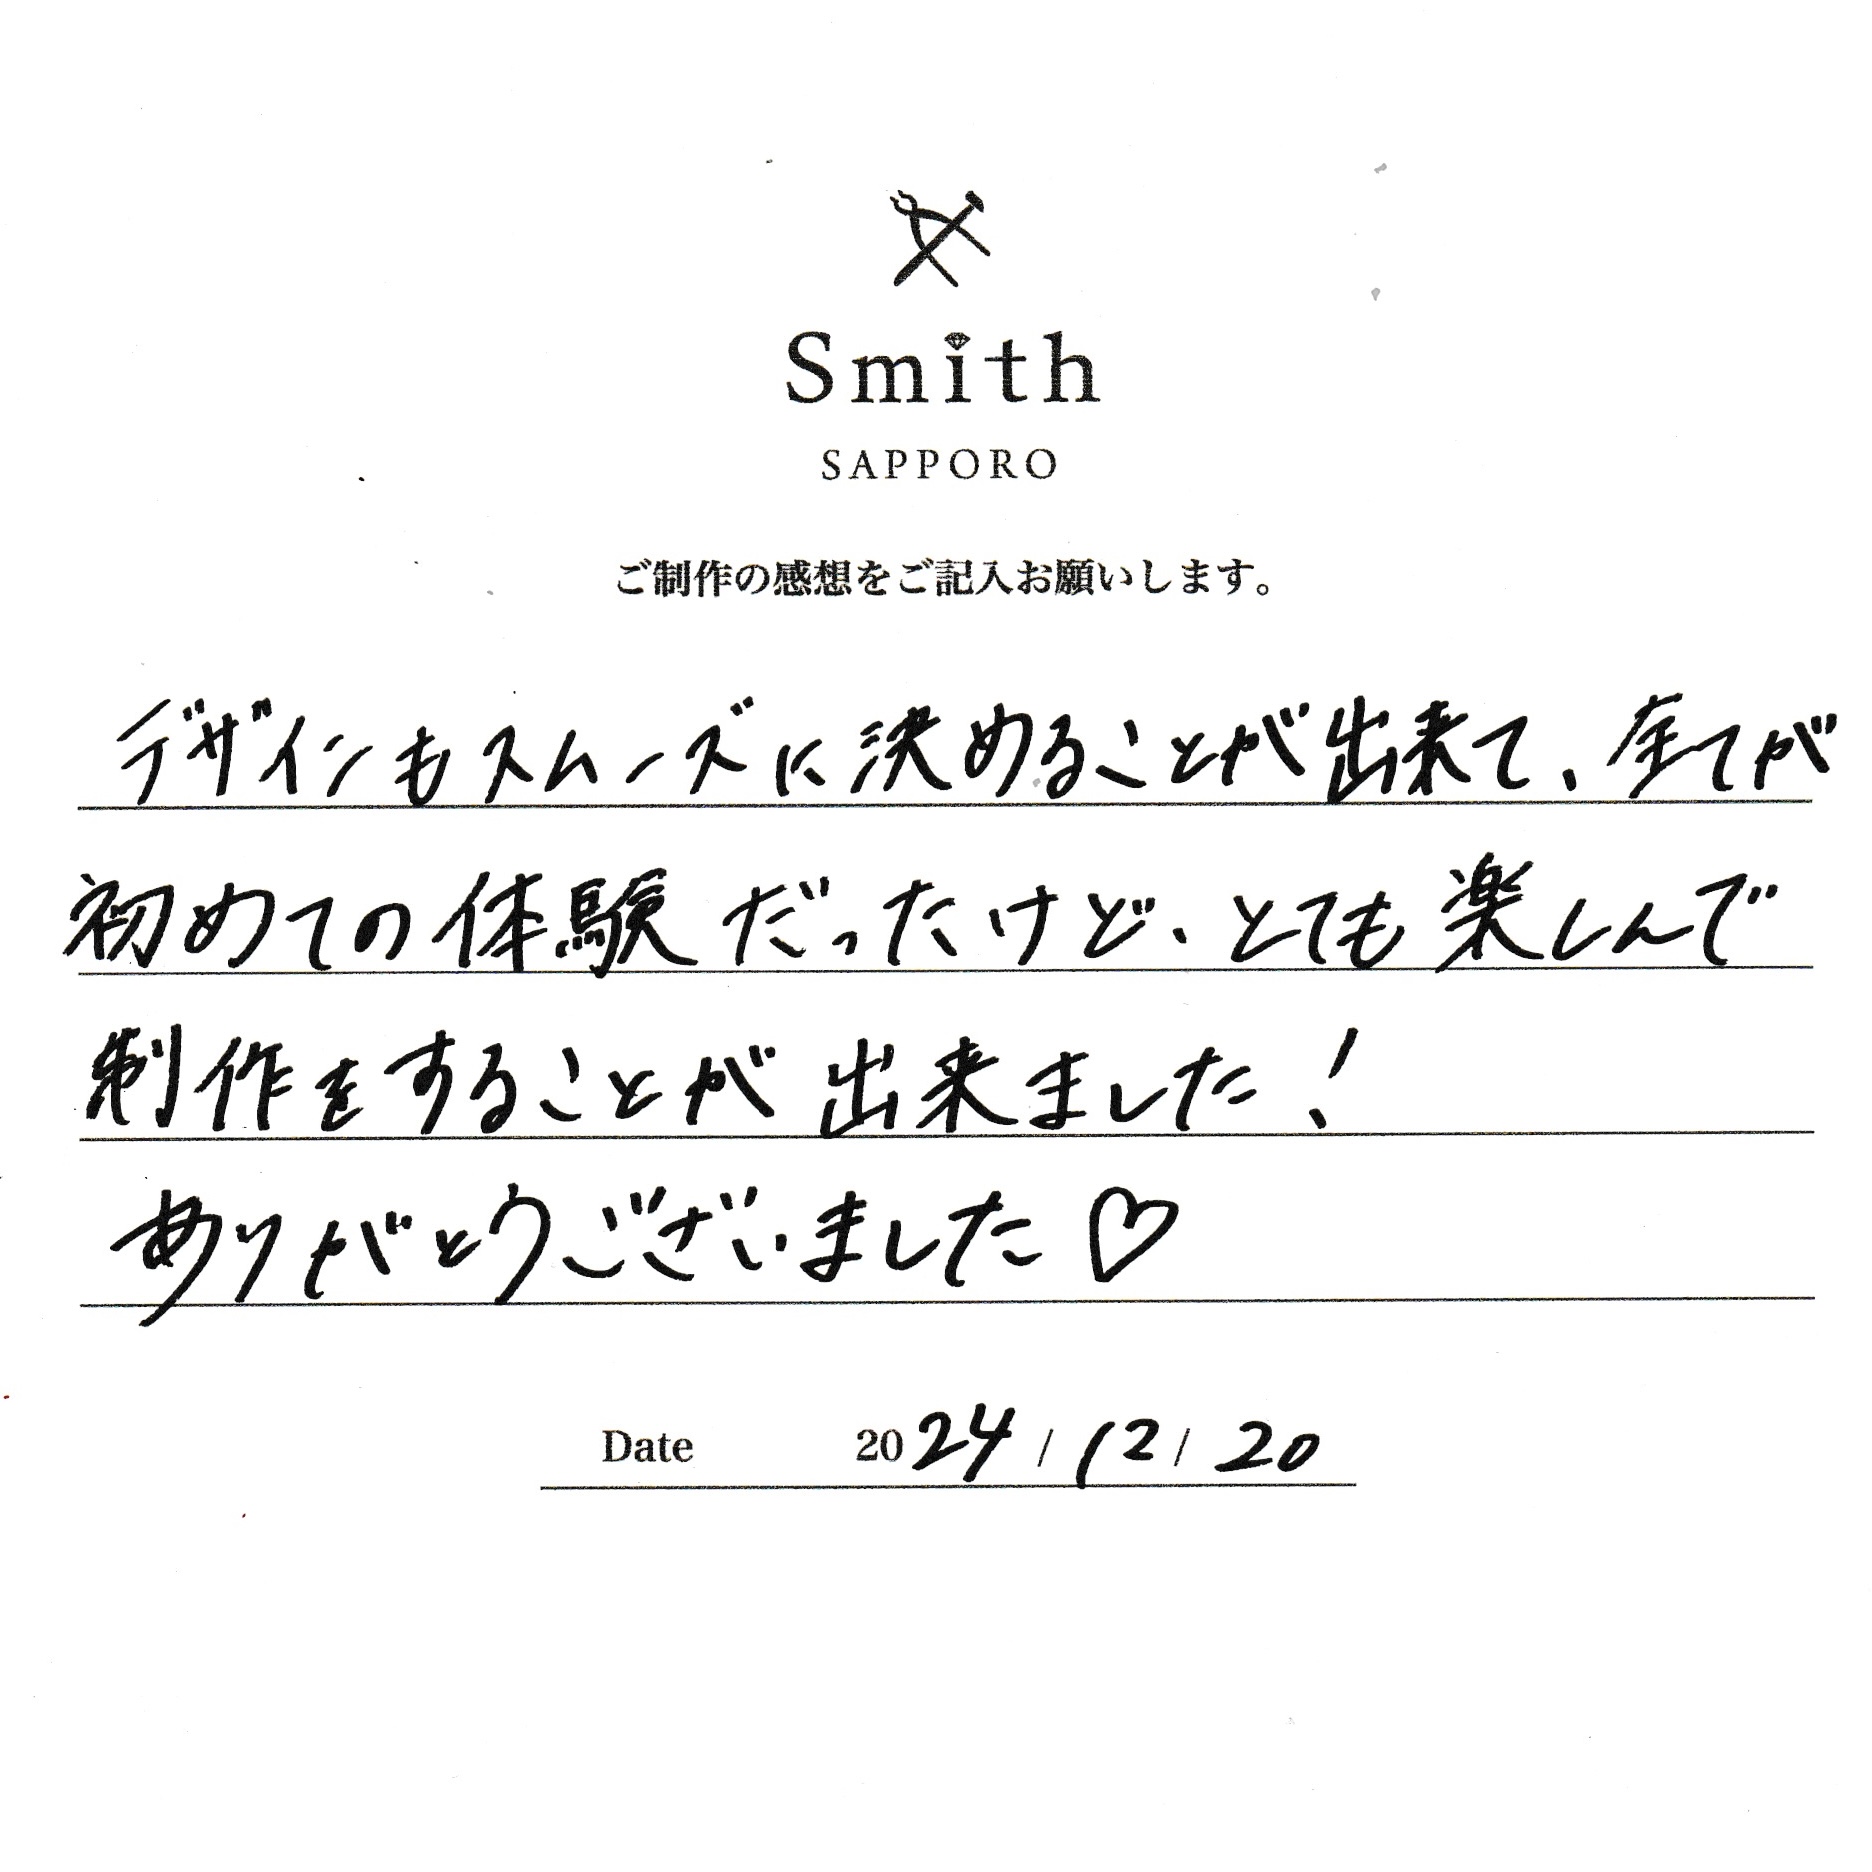 Smith
SAPPORO
ご制作の感想をご記入お願いします。
デザインもスムーズに決めることが出来て、全てが
初めての体験だったけど、とても楽しんで
制作をすることが出来ました!
ありがとうございました♡
Date 2024/12/20